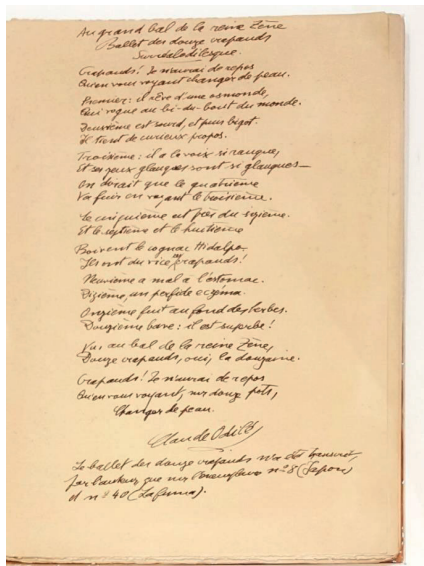 Au grand bal de la reine Zène
Ballet des douze crapauds
Surréalodilesque.
Crapauds! Je n'aurai de repos
Qu'en vous voyant changer de peau.
Premier: il rêve d'une osmonde,
Qui vogue au bi-du-bout du monde.
Deuxième est sourd, et puis bigot.
Il tient de curieux propos.
Troisième: il a la voix si rauque,
Et ses yeux glauques sont si glauques—
On dirait que le quatrième
Va fuir en voyant le troisième.
Le cinquième est près du sixième.
Et le septième et le huitième
Boivent le cognac Hidalgo.
Ils ont du vice, crapauds!
Neuvième a mal à l'estomac.
Dixième, un perfide eczéma.
Onzième fuit au fond des herbes.
Douzième bave: il est superbe!
Vus au bal de la reine Zène,
Douze crapauds, oui, la douzaine.
Crapauds! Je n'aurai de repos
Qu'en vous voyant, mes douze pots,
Changer de peau.
Claude Odilé
Le ballet des douze crapauds n'a été transcrit,
par l'auteur, que sur l'exemplaire n° 8 (Japon)
et n° 40 (Lafuma).